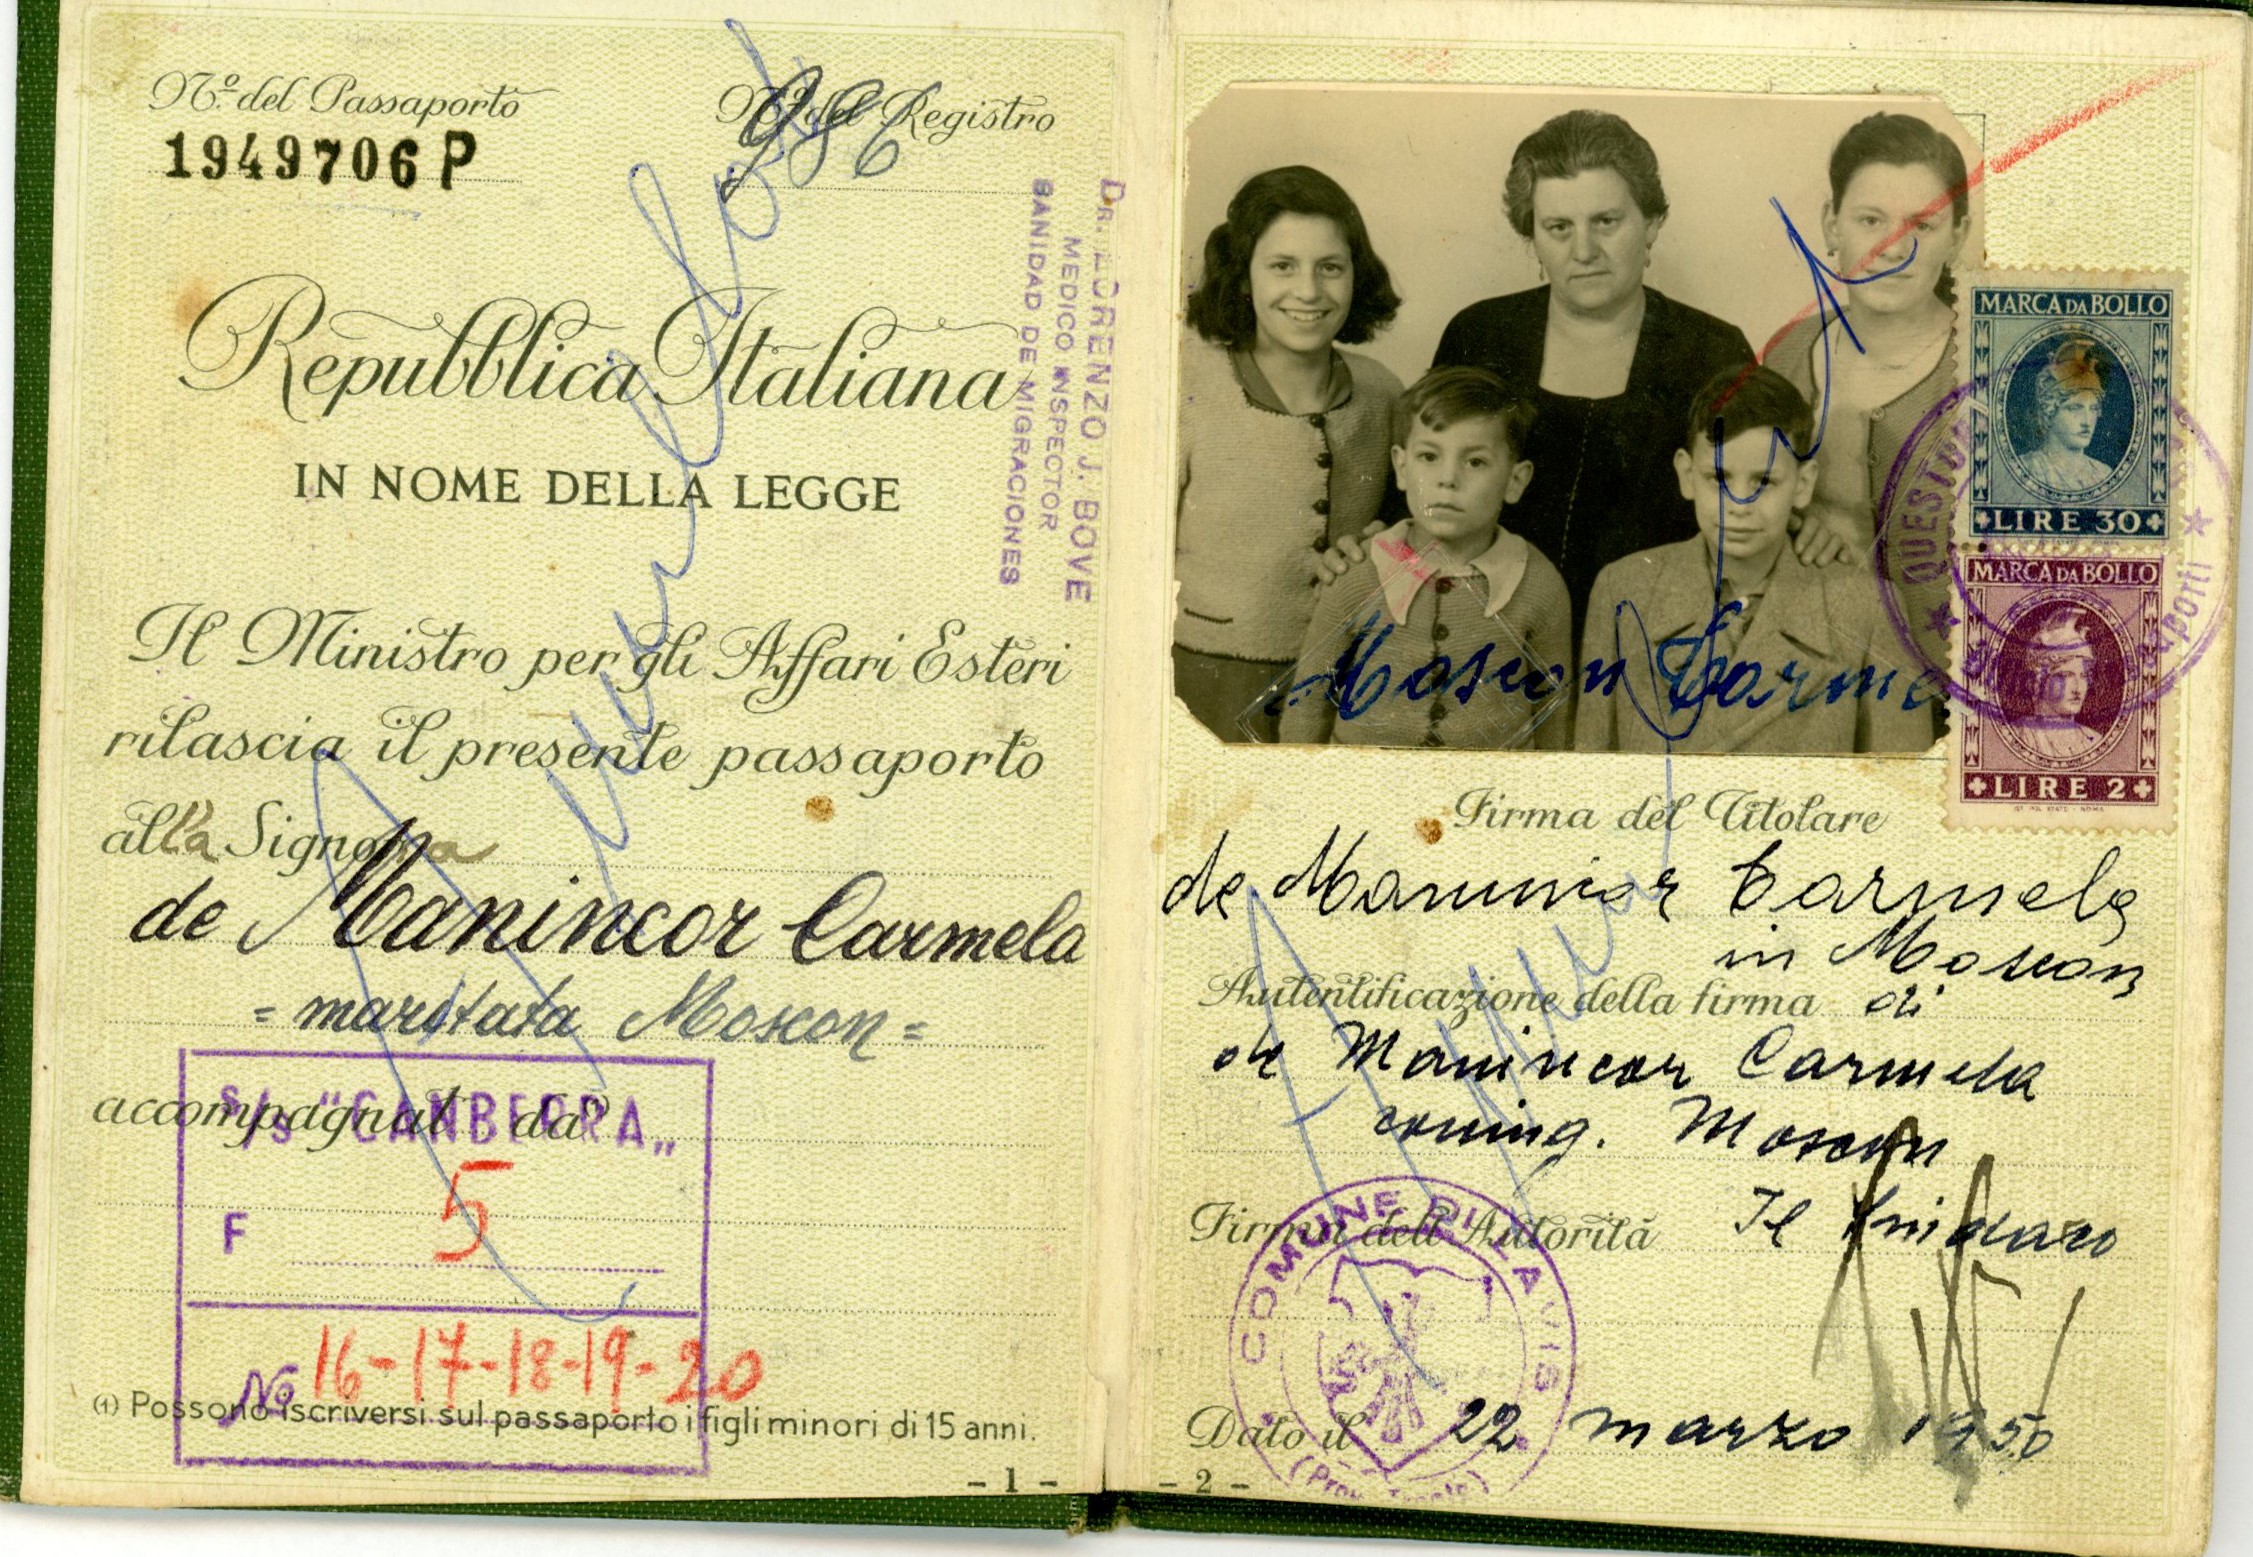 Nº del Passaporto
1949706 P
Nº del Registro
986
Repubblica Italiana
IN NOME DELLA LEGGE
Il Ministro per gli Affari Esteri
rilascia il presente passaporto
alla Signora
de Manincor Carmela
= maritata Moscon =
accompagnat da (1)
S/S "CANBERRA"
F 5
No 16-17-18-19-20
(1) Possono iscriversi sul passaporto i figli minori di 15 anni.
- 1 -
DR. LORENZO J. BOVE
MEDICO INSPECTOR
SANIDAD DE MIGRACIONES
Annullato
MARCA DA BOLLO
LIRE 30
MARCA DA BOLLO
LIRE 2
QUESTURA
Moscon Carme
Firma del Titolare
de Manincor Carmela
in Moscon
Autentificazione della firma di
de Manincor Carmela
coniug. Moscon
Firma dell'Autorità Il Sindaco
COMUNE DI LAVIS
Dato il 22 marzo 1950
- 2 -